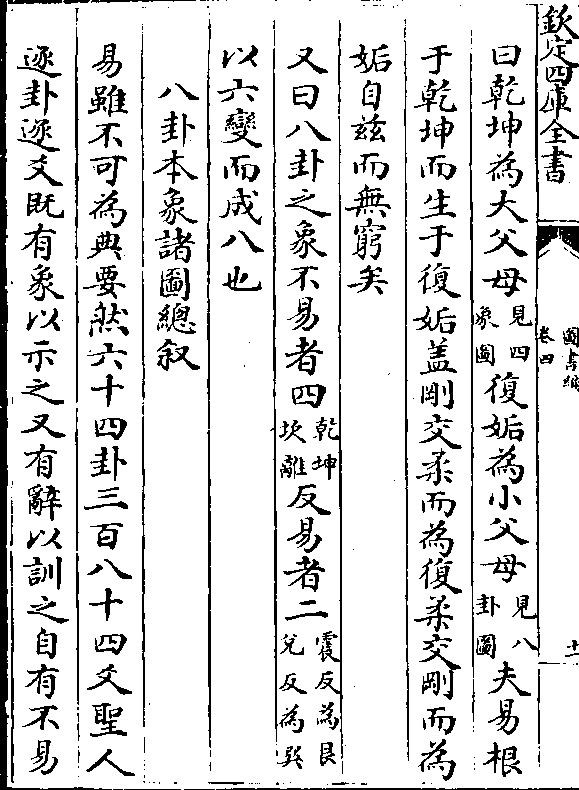 欽定四庫全書
圖書編
卷四
十一
曰乾坤為大父母見四象圖復姤為小父母見八卦圖夫易根
于乾坤而生于復姤盖剛交柔而為復柔交剛而為
姤自兹而無窮矣
又曰八卦之象不易者四乾坤坎離反易者二震反為艮兌反為巽
以六變而成八也
八卦本象諸圖總叙
易雖不可為典要然六十四卦三百八十四爻聖人
逐卦逐爻既有象以示之又有辭以訓之自有不易